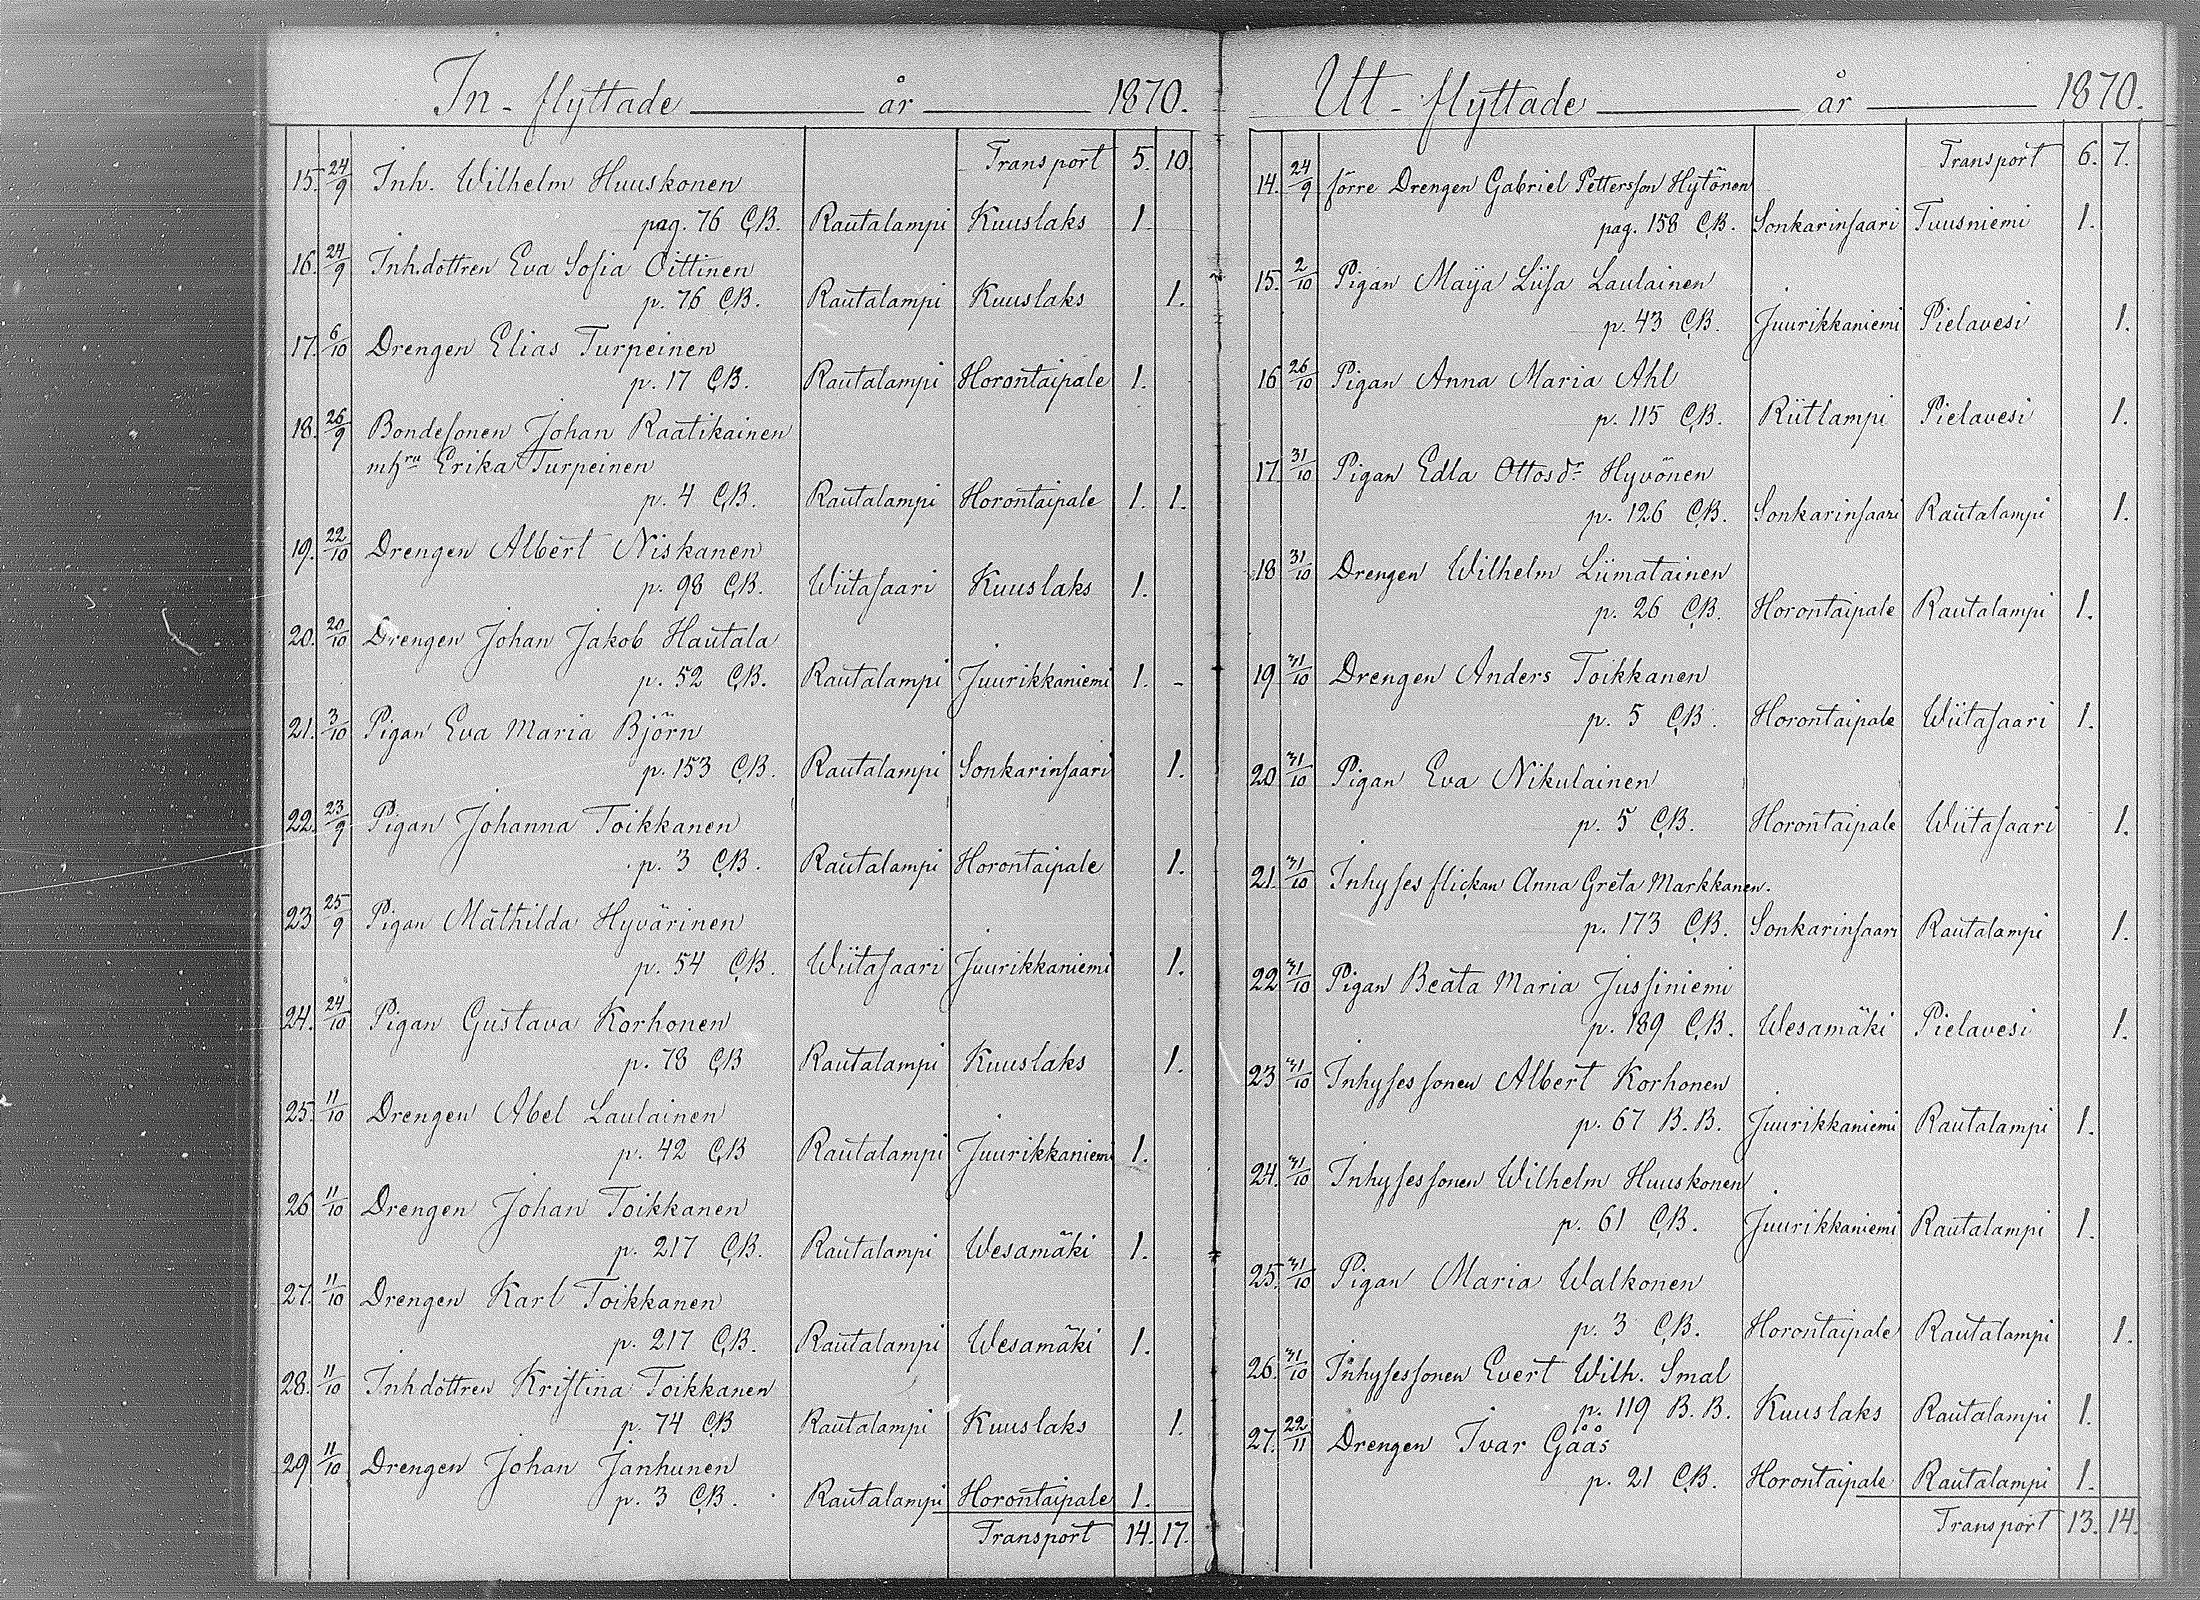 In-flyttade år 1870.
Transport 5. 10.
15. 24/9 Inh. Wilhelm Huuskonen
pag. 76 C,B. Rautalampi Kuuslaks 1.
16. 24/9 Inh.dottren Eva Sofia Oittinen
p. 76 C,B. Rautalampi Kuuslaks 1.
17. 6/10 Drengen Elias Turpeinen
p. 17 C,B. Rautalampi Horontaipale 1.
18. 26/9 Bondesonen Johan Raatikainen
mhru Erika Turpeinen
p. 4 C,B. Rautalampi Horontaipale 1. 1.
19. 22/10 Drengen Albert Niskanen
p. 98 C,B. Wiitasaari Kuuslaks 1.
20. 20/10 Drengen Johan Jakob Hautala
p. 52 C,B. Rautalampi Juurikkaniemi 1. -
21. 3/10 Pigan Eva Maria Björn
p. 153 C,B. Rautalampi Sonkarinsaari 1.
22. 23/9 Pigan Johanna Toikkanen
p. 3 C,B. Rautalampi Horontaipale 1.
23 25/9 Pigan Mathilda Hyvärinen
p. 54 C,B. Wiitasaari Juurikkaniemi 1.
24. 24/10 Pigan Gustava Korhonen
p. 78 C,B Rautalampi Kuuslaks 1.
25. 11/10 Drengen Abel Laulainen
p. 42 C,B Rautalampi Juurikkaniemi 1.
26 11/10 Drengen Johan Toikkanen
p. 217 C,B. Rautalampi Wesamäki 1.
27. 11/10 Drengen Karl Toikkanen
p. 217 C,B. Rautalampi Wesamäki 1.
28. 11/10 Inhdottren Kristina Toikkanen
p. 74 C,B Rautalampi Kuuslaks 1.
29 11/10 Drengen Johan Janhunen
p. 3 C,B. Rautalampi Horontaipale 1.
Transport 14. 17.
Ut-flyttade år 1870.
Transport 6. 7.
14. 24/9 förre Drengen Gabriel Pettersson Hytönen
pag. 158 C,B. Sonkarinsaari Tuusniemi 1.
15. 2/10 Pigan Maija Liisa Laulainen
p. 43 C,B. Juurikkaniemi Pielavesi 1.
16 26/10 Pigan Anna Maria Ahl
p. 115 C,B. Riitlampi Pielavesi 1.
17 31/10 Pigan Edla Ottosdr Hyvönen
p. 126 C,B. Sonkarinsaari Rautalampi 1.
18 31/10 Drengen Wilhelm Liimatainen
p. 26 C,B. Horontaipale Rautalampi 1.
19 31/10 Drengen Anders Toikkanen
p. 5 C,B. Horontaipale Wiitasaari 1.
20 31/10 Pigan Eva Nikulainen
p. 5 C,B. Horontaipale Wiitasaari 1.
21. 31/10 Inhyses flickan Anna Greta Markkanen.
p. 173 C,B. Sonkarinsaari Rautalampi 1.
22 31/10 Pigan Beata Maria Jussiniemi
p. 189 C,B. Wesamäki Pielavesi 1.
23 31/10 Inhysessonen Albert Korhonen
p. 67 B.B. Juurikkaniemi Rautalampi 1.
24. 31/10 Inhysessonen Wilhelm Huuskonen
p. 61 C,B. Juurikkaniemi Rautalampi 1.
25. 31/10 Pigan Maria Walkonen
p. 3 C,B. Horontaipale Rautalampi 1.
26. 31/10 Inhysessonen Evert Wilh. Smal
p. 119 B.B. Kuuslaks Rautalampi 1.
27. 22/11 Drengen Ivar Gåås
p. 21 C,B. Horontaipale Rautalampi 1.
Transport 13. 14.